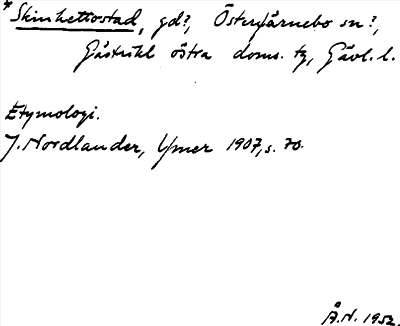 * Skinhettostad, gd?, Österfärnebo sn?,
Gästrikl östra doms. tg, Gävl. l.
Etymologi.
J. Nordlander, Ymer 1907, s. 70.
Å.N. 1952.